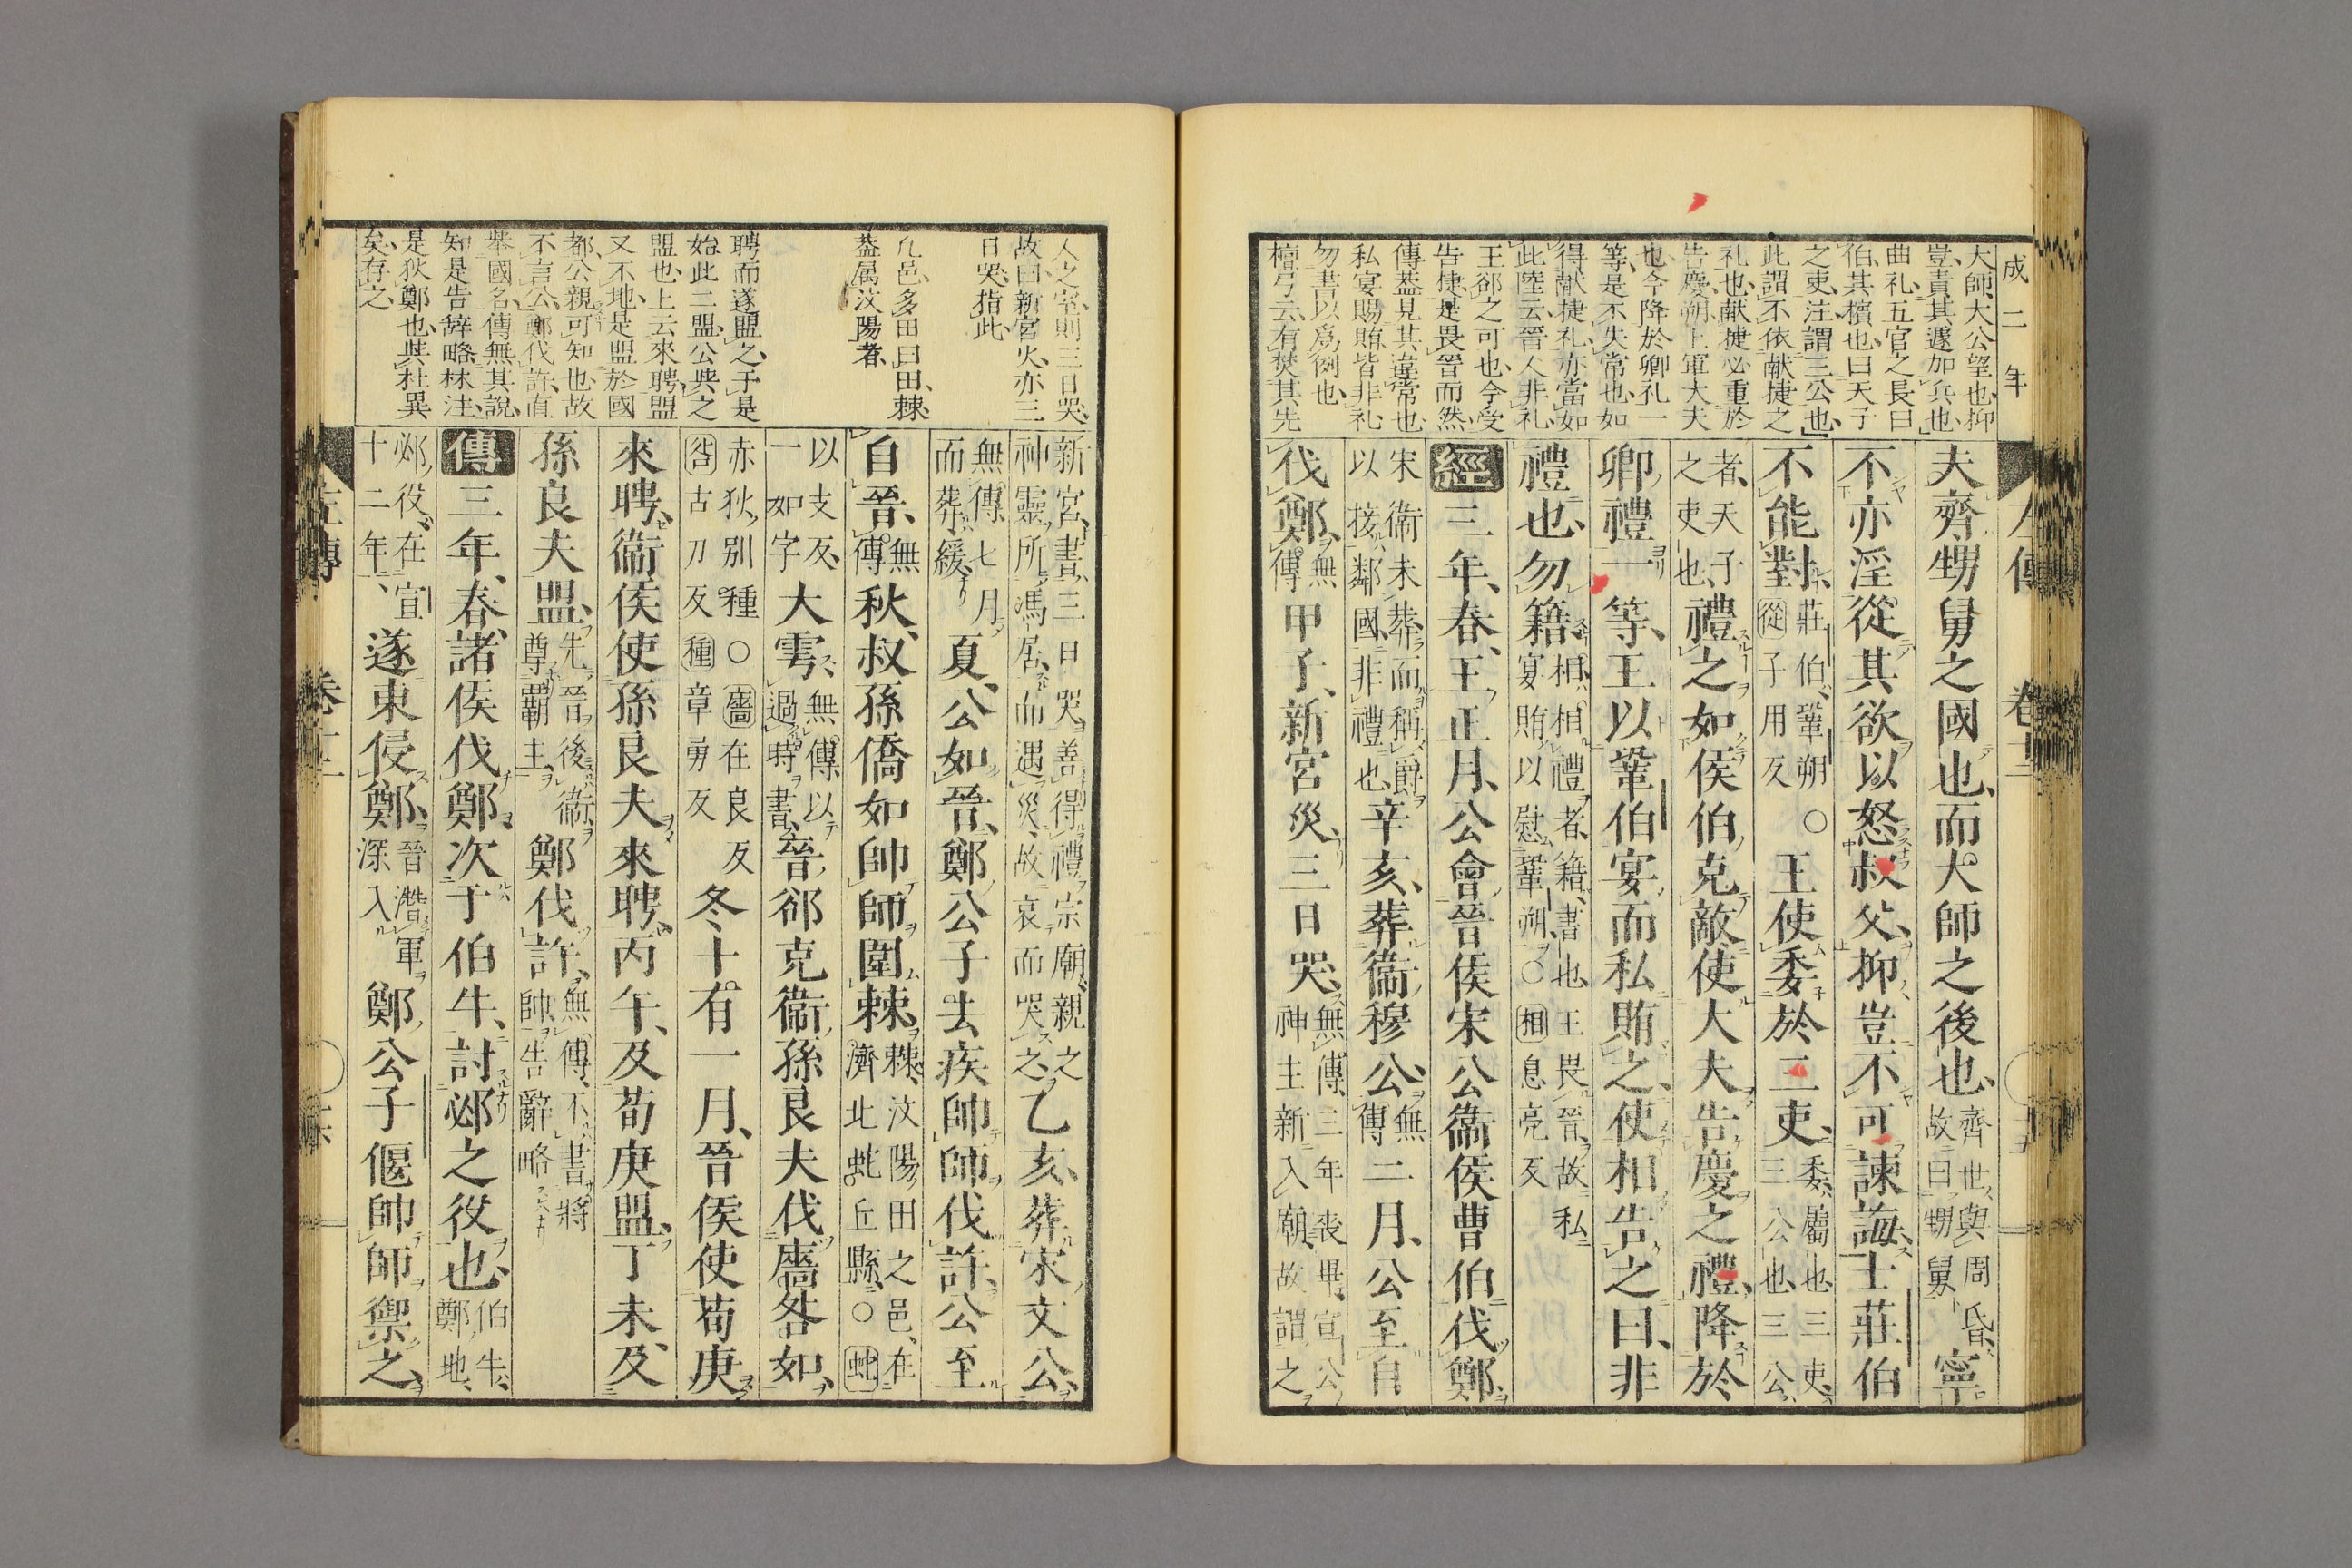 成二年
大師大公望也抑
豈責其遽加兵也
曲礼五官之長曰
伯其擯也曰天子
之吏注謂三公也
此謂不依献捷之
礼也献捷必重於
告慶朔上軍大夫
也今降於卿礼一
等是不失常也如
得献捷礼亦當如
此陸云晉人非礼
王郤之可也今受
告捷是畏晉而然
傳蓋見其違常也
私宴賜賄皆非礼
勿書以爲例也
檀弓云有焚其先
夫齊甥舅之國也而大師之後也齊世與周昏故曰甥舅寧
不亦淫從其欲以怒叔父抑豈不可諫誨士莊伯
不能對莊伯鞏朔○從子用反王使委於三吏委屬也三吏三公也三公
者天子之吏也禮之如侯伯克敵使大夫告慶之禮降於
卿禮一等王以鞏伯宴而私賄之使相告之曰非
禮也勿籍相相禮者籍書也王畏晉故私宴賄以慰鞏朔○相息亮反
經三年春王正月公會晉侯宋公衞侯曹伯伐鄭
宋衞未葬而稱爵以接鄰國非禮也辛亥葬衞穆公無傳二月公至自
伐鄭無傳甲子新宮災三日哭無傳三年喪畢宣公神主新入廟故謂之
人之室則三日哭
故曰新宮火亦三
日哭指此
凡邑多田曰田棘
蓋属汶陽者
聘而遂盟之于是
始此二盟公與之
盟也上云來聘盟
又不地是盟於國
都公親可知也故
不言公鄭伐許直
舉國名傳無其說
知是告辞略林注
是狄鄭也與杜異
矣存之
新宮書三日哭善得禮宗廟親之神靈所馮居而遇災故哀而哭之乙亥葬宋文公
無傳七月而葬緩夏公如晉鄭公子去疾帥師伐許公至
自晉無傳秋叔孫僑如帥師圍棘棘汶陽田之邑在濟北蛇丘縣○蛇
以支反一如字大雩無傳以過時書晉郤克衞孫良夫伐廧咎如
赤狄別種○廧在良反咎古刀反種章勇反冬十有一月晉侯使荀庚
來聘衞侯使孫良夫來聘丙午及荀庚盟丁未及
孫良夫盟先晉後衞尊霸主鄭伐許無傳不書將帥告辭略
傳三年春諸侯伐鄭次于伯牛討邲之役也伯牛鄭地
邲役在宣十二年遂東侵鄭晉潛軍深入鄭公子偃帥師禦之
左傳 卷十二